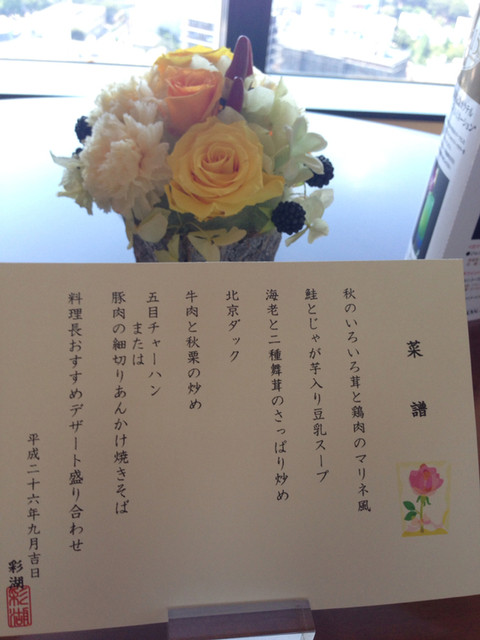 菜譜
秋のいろいろ茸と鶏肉のマリネ風
鮭とじゃが芋入り豆乳スープ
海老と二種舞茸のさっぱり炒め
北京ダック
牛肉と秋栗の炒め
五目チャーハン
または
豚肉の細切りあんかけ焼きそば
料理長おすすめデザート盛り合わせ
平成二十六年九月吉日
彩湖
彩湖